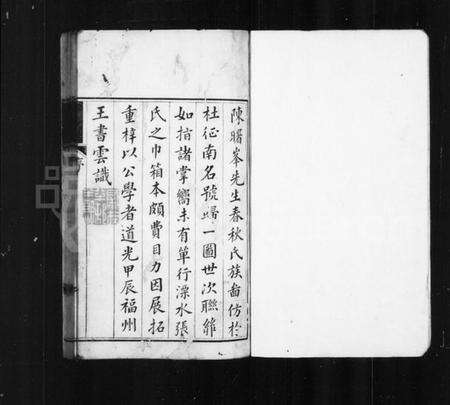 陳曙峯先生春秋氏族啚仿於
杜征南名號歸一圖世次聯雒
如指諸掌嚮未有單行溧水張
氏之巾箱本頗費目力因展拓
重梓以公學者道光甲辰福州
王書雲識